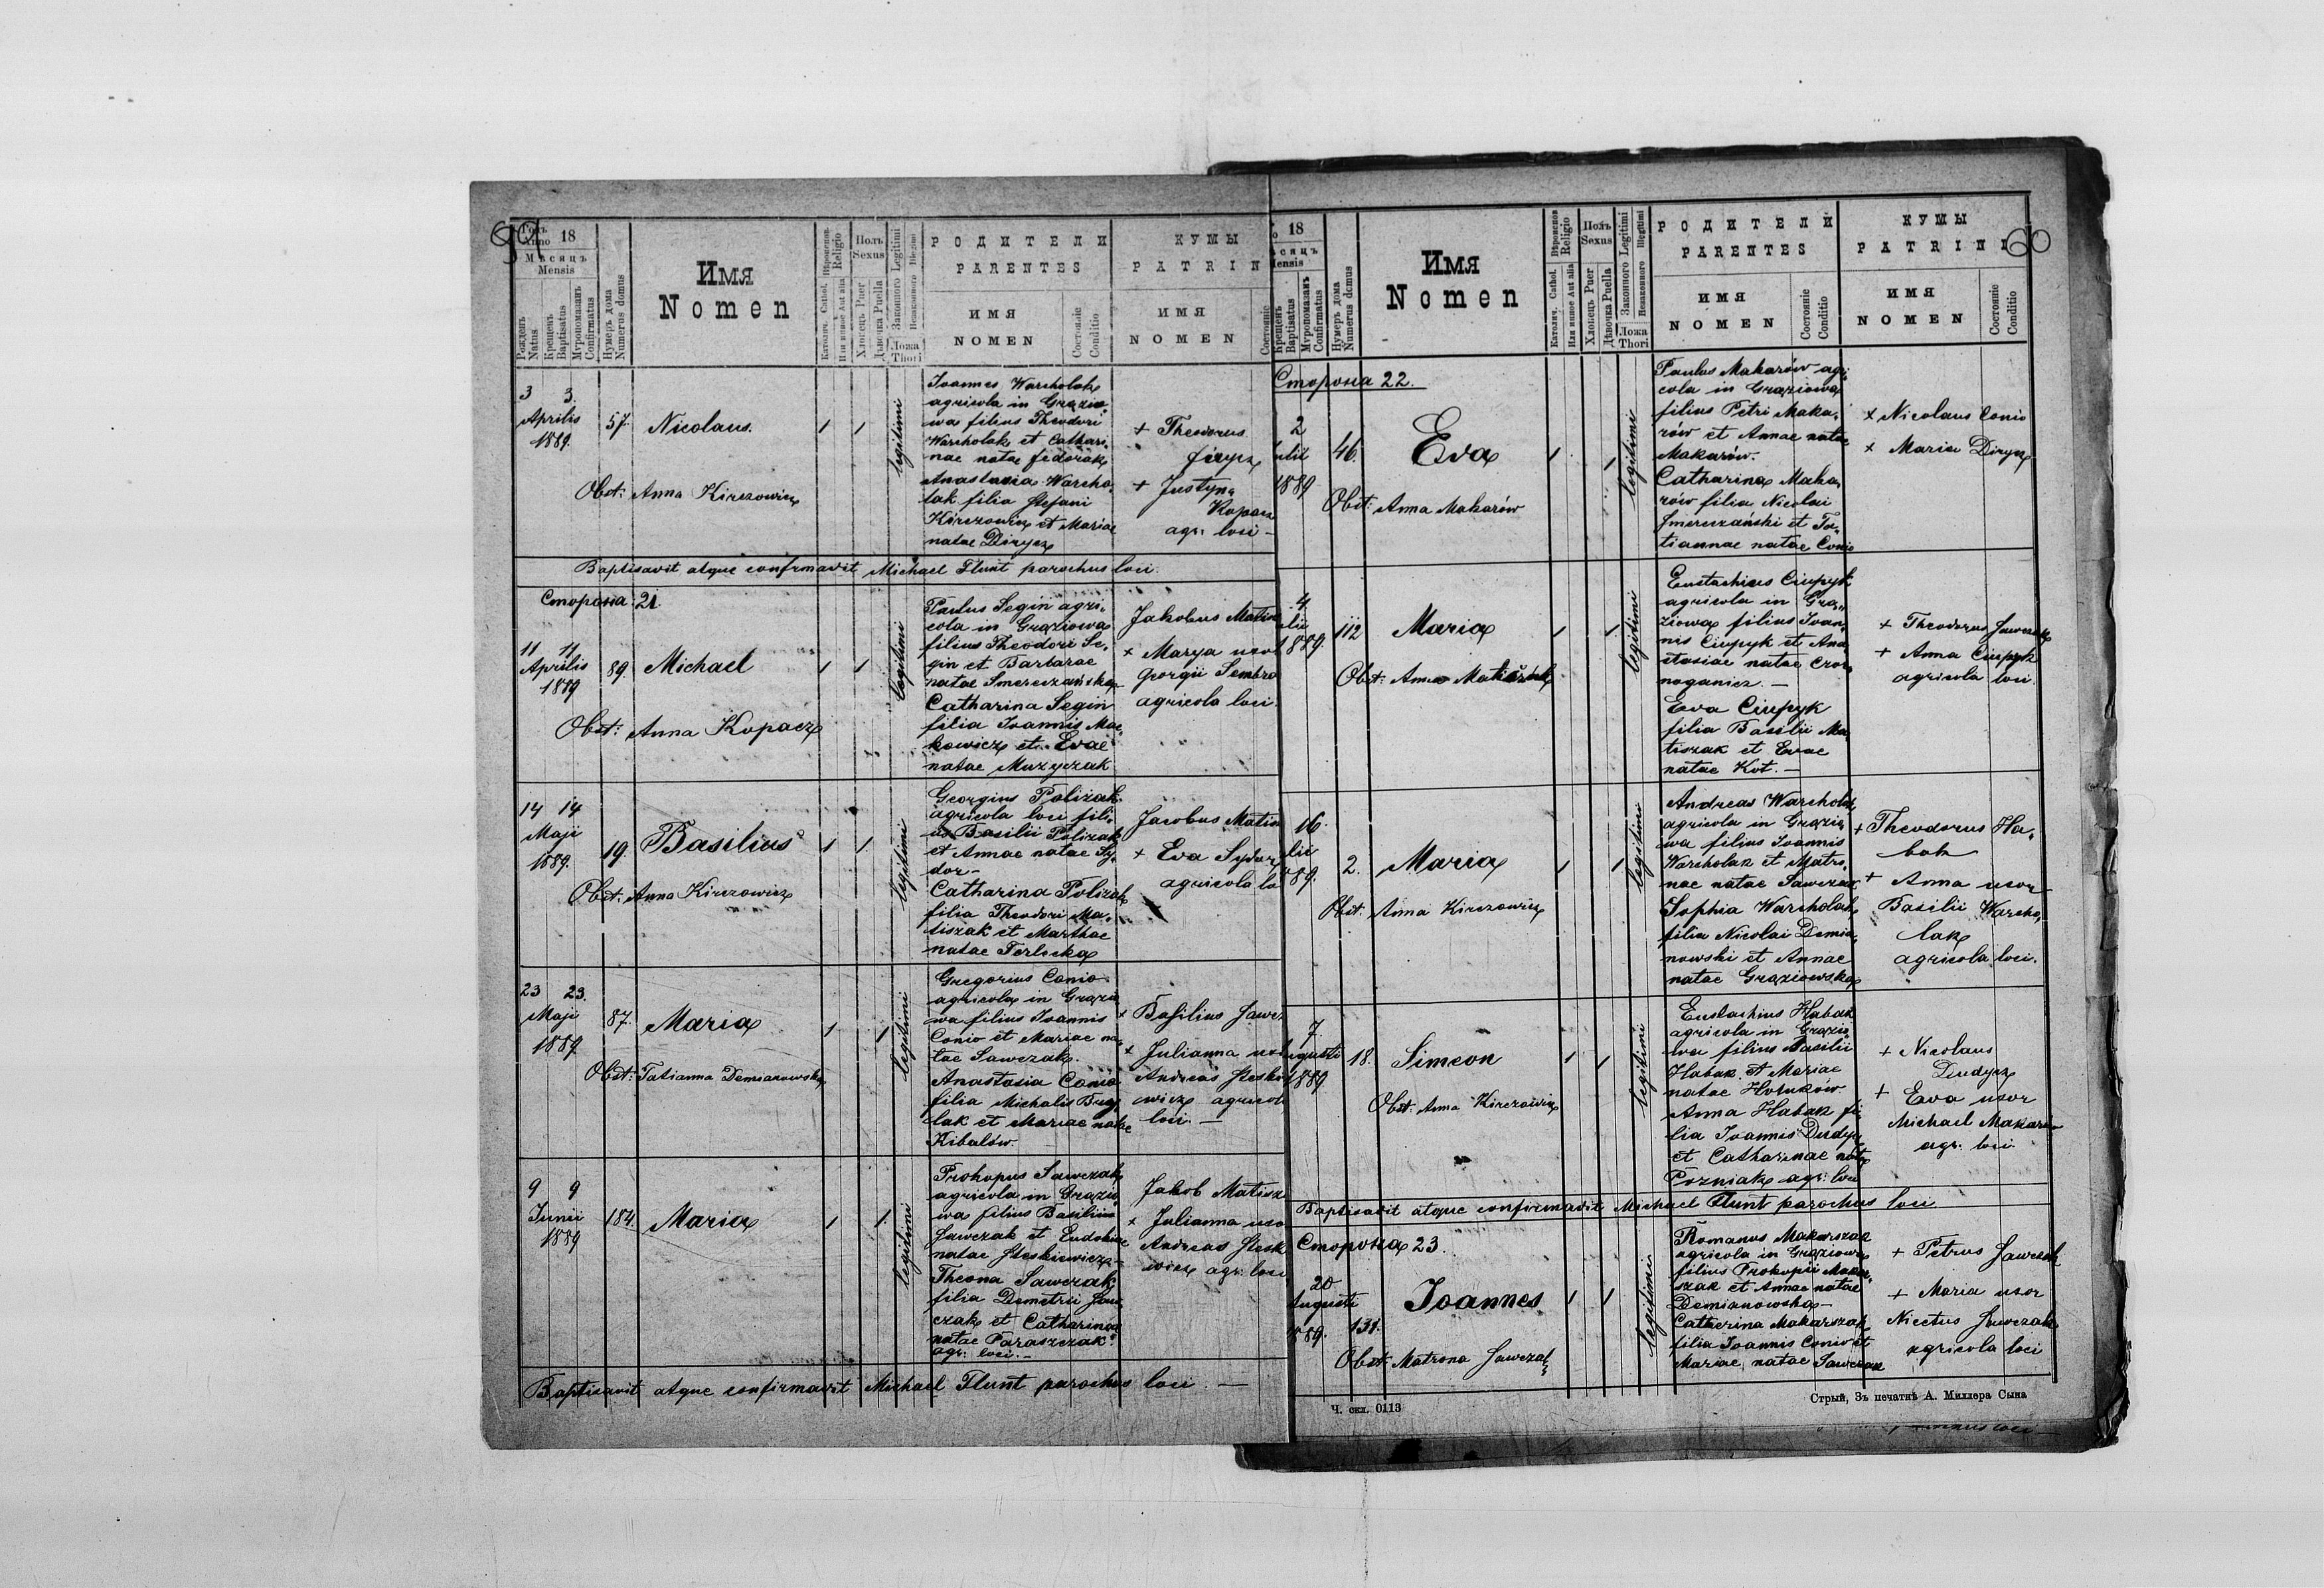 59
Годъ Anno 18
Мѣсяцъ
Mensis
Рожденъ Natus
Крещенъ Baptisatus
Мѵропомазанъ Confirmatus
Нумеръ дома Numerus domus
Имя
Nomen
Вѣроисповѣд. Religio
Католич. Cathol.
Или инное Aut alia
Полъ
Sexus
Хлопецъ Puer
Дѣвочка Puella
Законного Legitimi
Незаконного Illegitimi
Ложа
Thori
РОДИТЕЛИ
PARENTES
ИМЯ
NOMEN
Состояніе
Conditio
КУМЫ
PATRIN
ИМЯ
NOMEN
Состояніе
3 3.
Aprilis
1889.
57.
Nicolaus.
legitimi
Obst: Anna Kirczowicz
Joannes Warcholak
agricola in Grazio
wa filius Theodori
Warcholak et Cathari
nae natae Fedorak
Anastasia Warcho
lak filia Stefani
Kirczowicz et Mariae
natae Dirycz
+ Theodorus
+ Justyna
Kopacz
agr. loci -
Baptisavit atque confirmavit Michael Flunt parochus loci.
Сторона 21.
11 11
Aprilis
1889
89.
Michael
legitimi
Obst: Anna Kopacz
Paulus Segin agri,
cola in Graziowa
filius Theodori Se,
gin et Barbarae
natae Smereczańska
Catharina Segin
filia Joannis Mac
kowicz et Evae
natae Muzyczak
Jakobus Matisz
+ Marya uxor
Georgii Sembra
agricola loci.
14 14
Maji
1889.
19.
Basilius
legitimi
Obst: Anna Kirczowicz
Georgius Polizak
agricola loci fili,
us Basilii Polizak
et Annae natae Sy,
dor -
Catharina Polizak
filia Theodori Ma,
tiszak et Marthae
natae Terlecka
Jacobus Matis
+ Eva Sydor
agricola lo
23 23.
Maji
1889
87.
Maria
legitimi
Obst: Tatianna Demianowska
Gregorius Conio
agricola in Grazio
wa filius Joannis
Conio et Mariae na,
tae Sawczak.
Anastasia Conio
filia Michalis Bug
lak et Mariae natae
Kibalów.
+ Basilius Sawcz
+ Julianna uxor
Andreas Stesko
wicz agricol
loci. —
9 9
Junii
1889
184.
Maria
legitimi
Prokopus Sawczak
agricola in Grazio
wa filius Basilius
Sawczak et Eudokiae
natae Steskiewicz -
Theona Sawczak
filia Demetrii Saw
czak et Catharinae
natae Paraszczak
agr. loci. -
Jakob Matisz
+ Julianna uxo
Andreas Stesk
wicz agr. loci
Baptisavit atque confirmavit Michael Flunt parochus loci —
60
18
Крещенъ Baptisatus
Мѵропомазанъ Confirmatus
Нумеръ дома Numerus domus
Имя
Nomen
Вѣроисповѣд. Religio
Католич. Cathol.
Или инное Aut alia
Полъ
Sexus
Хлопецъ Puer
Дѣвочка Puella
Законного Legitimi
Незаконного Illegitimi
Ложа
Thori.
РОДИТЕЛИ
PARENTES
ИМЯ
NOMEN
Состояніе
Conditio
КУМЫ
PATRINI
ИМЯ
NOMEN
Состояніе
Conditio
Сторона 22.
2
ulii
1889
46.
Eva
legitimi
Obst: Anna Makarów
Paulus Makarów agri,
cola in Graziowa
filius Petri Maka,
rów et Annae natae
Makarów.
Catharina Maka,
rów filia Nicolai
Smereczański et Ta,
tiannae natae Conio
+ Nicolaus Conio
+ Maria Dirycz
4
lii
1889.
112
Maria
legitimi
Obst: Anna Matiszak
Eustachius Ciupyk
agricola in Gra,
ziowa filius Joan,
nis Ciupyk et Ana
stasiae natae Czor
noganicz. —
Eva Ciupyk
filia Basilii Ma
tiszak et Evae
natae Kot. —
+ Theodorus Sawczak
+ Anna Ciupyk
agricola loci.
16.
lii
889.
2.
Maria
legitimi
Obst. Anna Kirczowicz
Andreas Warcholak
agricola in Grazio
wa filius Joannis
Warcholak et Matro,
nae natae Sawczak
Sophia Warcholak
filia Nicolai Demia,
nowski et Annae
natae Graziowska
+ Theodorus Ha,
bak
+ Anna uxor
Basilii Warcho,
lak
agricola loci.
7
ugusti
1889
18.
Simeon
legitimi
Obst. Anna Kirczowicz
Eustachius Habak
agricola in Grazio
wa filius Basilii
Habak et Mariae
natae Holuków
Anna Habak fi,
lia Joannis Dudycz
et Catharinae natae
Pozniak agr. loci
+ Nicolaus
Dudycz
+ Eva uxor
Michael Makarów
agr. loci
Baptisavit atque confirmavit Michael Flunt parochus loci
Сторона 23.
20
Augusti
1889.
131.
Joannes
legitimi
Obst. Matrona Sawczak
Romanus Makarszak
agricola in Graziowa
filius Prokopii Makar,
szak et Annae natae
Demianowska -
Catherina Makarszak
filia Joannis Conio et
Mariae natae Sawczak
+ Petrus Sawczak
+ Maria uxor
Nicetus Sawczak
agricola loci
Ч. скл. 0113
Стрый, Зъ печатнѣ А. Миллера Сына